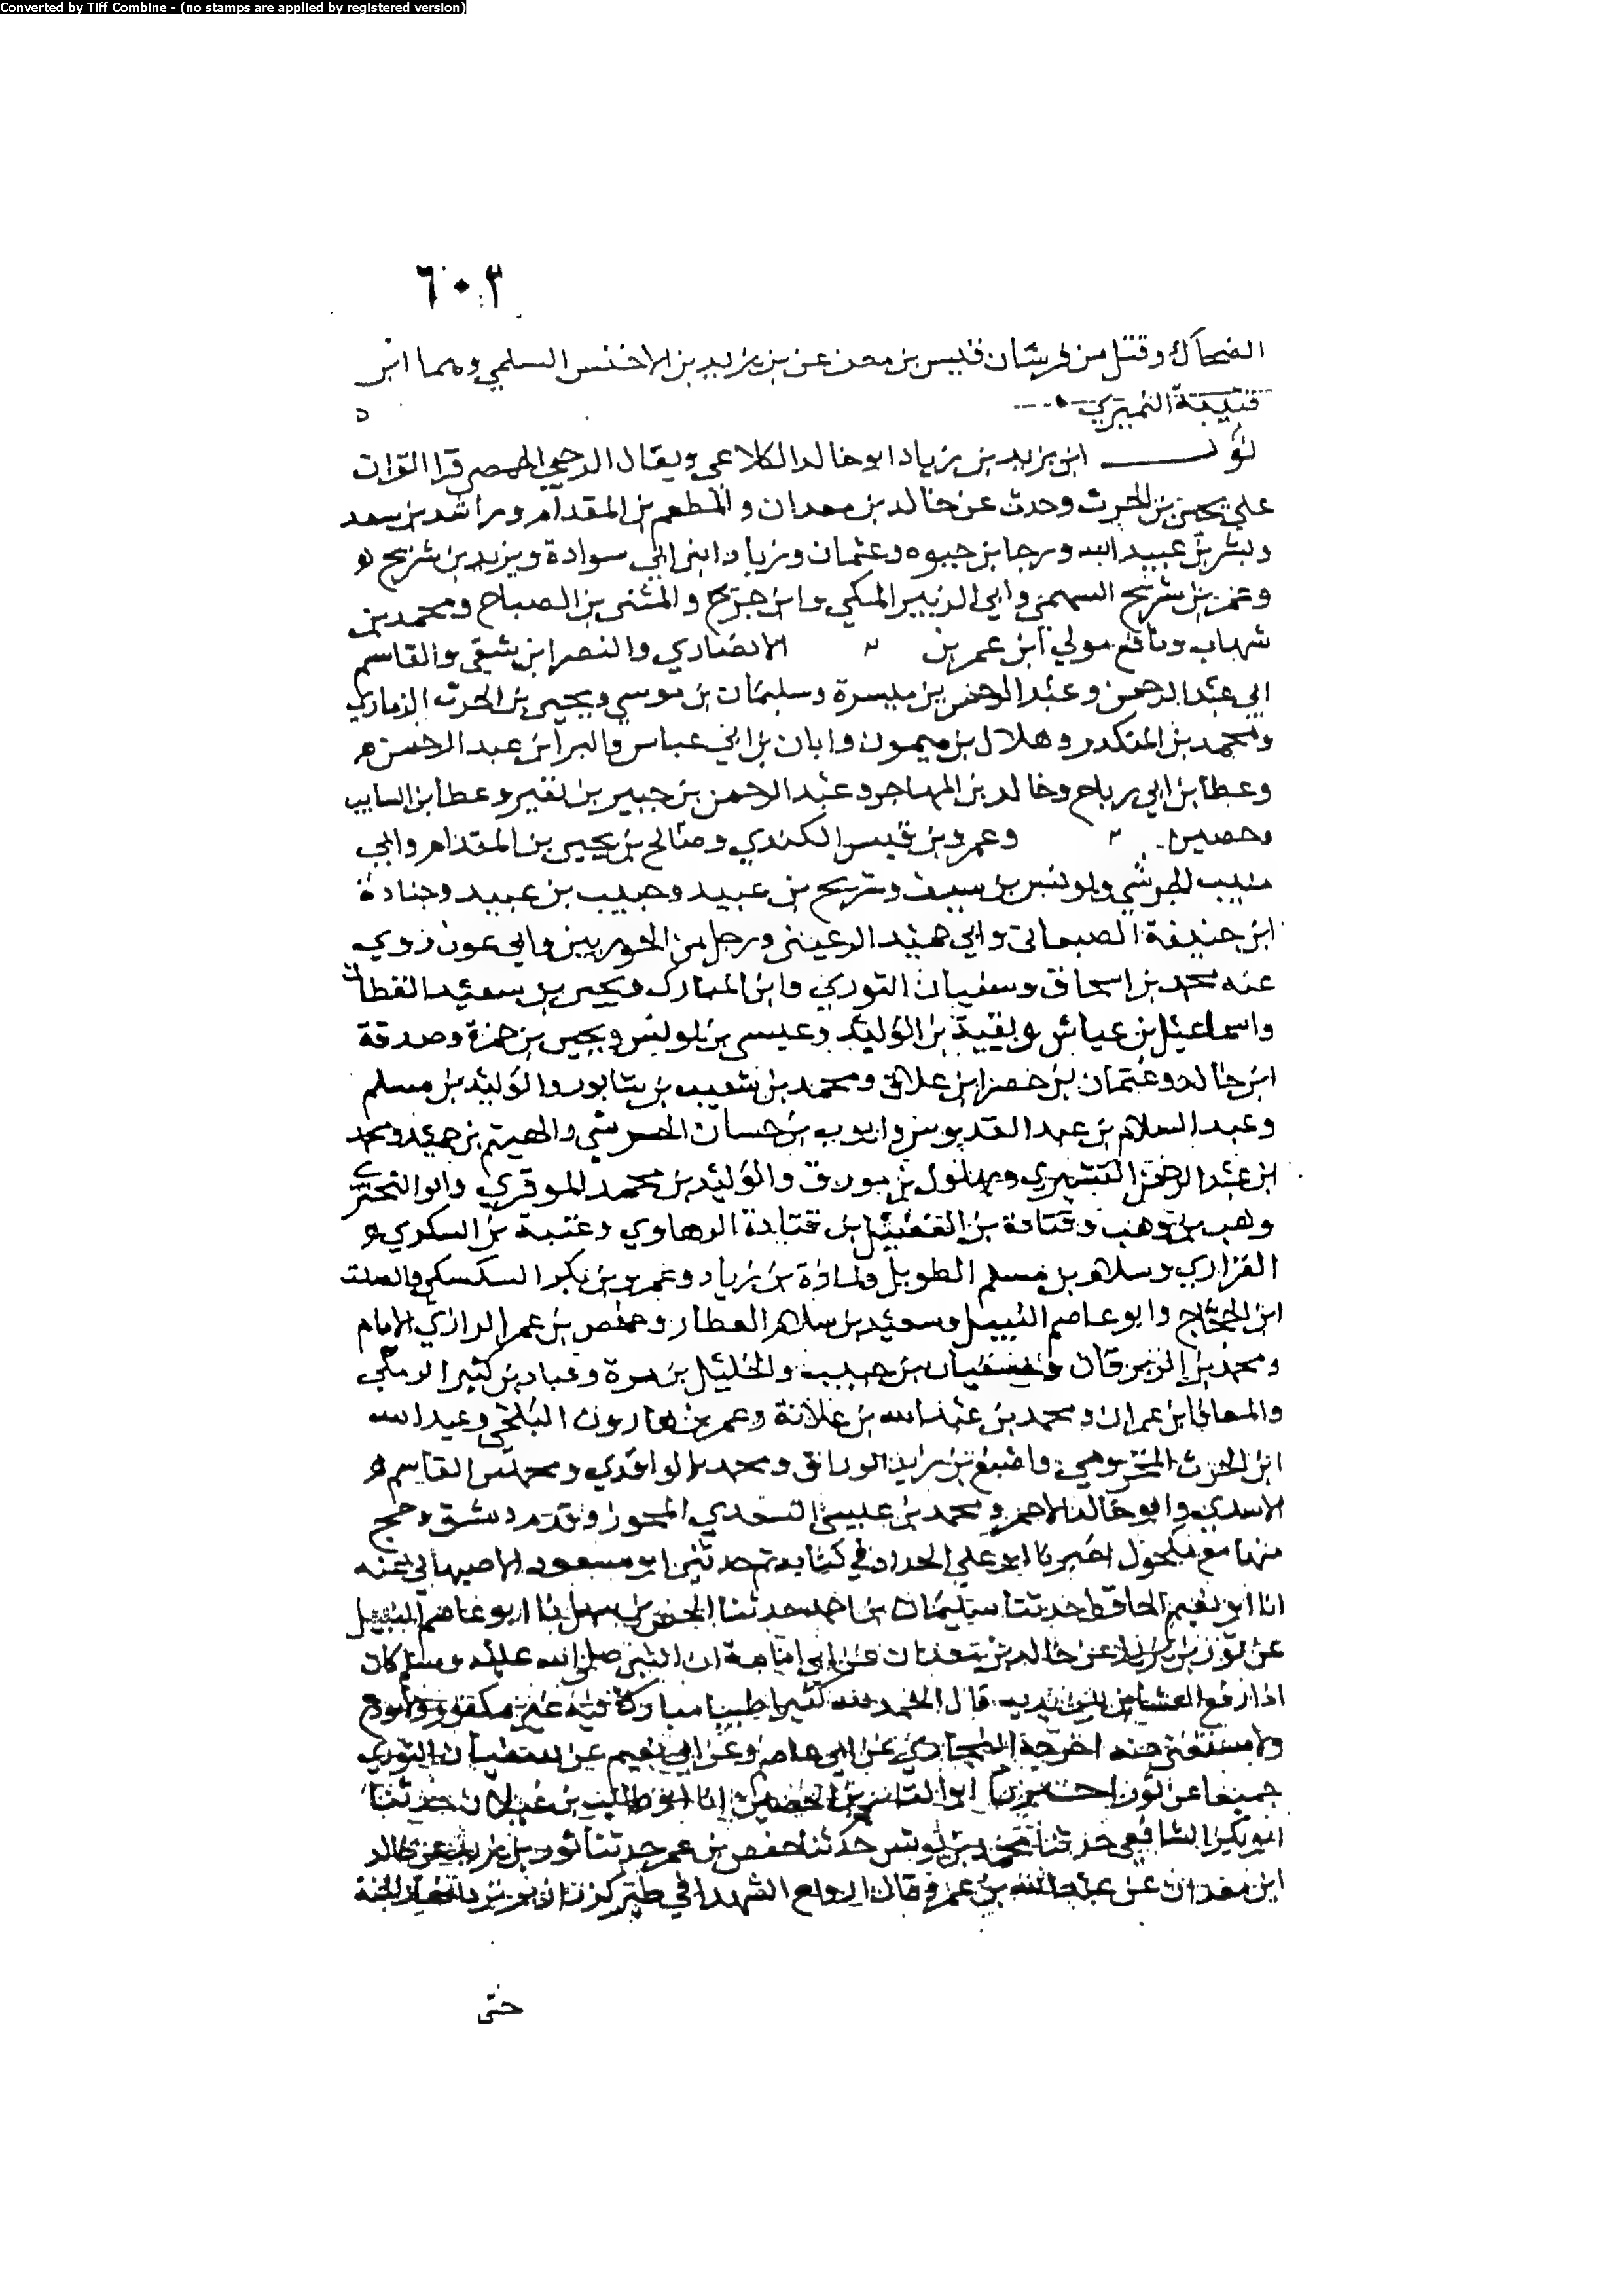 Converted by Tiff Combine - (no stamps are applied by registered version)
٦٠٣
الضحاك وقتل من فرسان قيس بن معن بن يزيد بن الاخنس السلمي وهما ابن
قتيبة النميري
ثور ابن يزيد بن زياد ابو خالد الكلاعي ويقال الرحبي الحمصي قرا القران
علي يحيى بن الحرث وحدث عن خالد بن معدان والمطعم بن المقدام وراشد بن سعد
وبشر بن عبيد الله ورجا بن حيوه وعثمان وزياد ابني ابي سوادة ويزيد بن شريح
وعمر بن شريح السهمي وابي الزبير المكي وابن جريج والمثنى بن الصباح ومحمد بن
شهاب ونافع مولي ابن عمر بن الانصاري والنصر ابن شقي والقاسم
ابي عبد الرحمن وعبد الرحمن بن ميسرة وسليمان بن موسي ويحيى بن الحرث الذماري
ومحمد بن المنكدر وهلال بن ميمون وابان بن ابي عباس والبرا بن عبد الرحمن
وعطا بن ابي رباح وخالد بن المهاجر وعبد الرحمن بن جبير بن نفير وعطا بن السايب
وحصين وعمرو بن قيس الكندي وصالح بن يحيى بن المقدام وابي
منيب الجرشي ويونس بن سيف وشريح بن عبيد وحبيب بن عبيد وجنادة
ابن حنيفة الصبعاني وابي حميد الرعيني ورجل من الحوريين وابي عون روي
عنه محمد بن اسحاق وسفيان الثوري وابن المبارك ويحيى بن سعيد القطان
واسماعيل بن عياش وبقية بن الوليد وعيسى بن يونس ويحيى بن حمزة وصدقة
ابن خالد وعثمان بن حصن ابن علاق ومحمد بن شعيب بن شابور والوليد بن مسلم
وعبد السلام بن عبد القدوس وايوب بن حسان الجرشي والهيثم بن حميد ومحمد
ابن عبد الرحمن القشيري وبهلول بن مورق والوليد بن محمد الموقري وابو البختري
وهب بن وهب وقتادة بن الفضيل بن قتادة الرهاوي وعتبة بن السكري
الفزاري وسلام بن مسلم الطويل ولمازة بن زياد وعمرو بن بكر السكسكي والصلت
ابن الحجاج وابو عاصم النبيل وسعيد بن سلام العطار وحفص بن عمر الرازي الامام
ومحمد بن الزبرقان وسفيان بن حبيب والخليل بن مرة وعباد بن كثير الرملي
والمعافا بن عمران ومحمد بن عبد الله بن علاثة وعمر بن هارون البلخي وعبد الله
ابن الحرث المخزومي واصبغ بن زيد الوراق ومحمد الواقدي ومحمد بن القاسم
الاسدي وابو خالد الاحمر ومحمد بن عيسى السعدي المحوز وقدم دمشق وحج
منها مع مكحول اخبرنا ابو علي الحداد في كتابه ثم حدثني ابو مسعود الاصبهاني عنه
انا ابو نعيم الحافظ حدثنا سليمان بن احمد حدثنا بن سهل نا ابو عاصم النبيل
عن ثور بن يزيد عن خالد بن معدان عن ابي امامة ان النبي صلى الله عليه وسلم كان
اذا رفع العشا من بين يديه قال الحمد لله كثيرا طيبا مباركا فيه غير مكفور ولا مودع
ولا مستغنى عنه اخرجه البخاري عن ابي عاصم وعن ابي نعيم عن سفيان الثوري
جميعا عن ثور اخبرنا ابو القاسم بن الحصين انا ابو طالب بن غيلان حدثنا
ابو بكر الشافعي حدثنا محمد بن يونس حدثنا حفص بن عمر حدثنا ثور بن يزيد عن خالد
ابن معدان عن عبد الله بن عمرو قال ارواح الشهدا في طير كزرازير ثمار الجنة
حتى